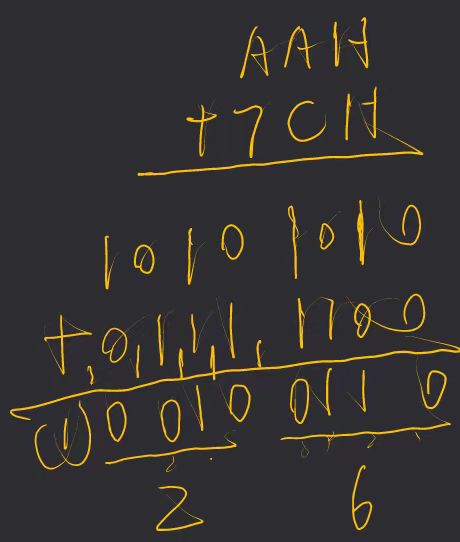 AAH
+7CH
1010 1010
+0111 1100
(1)0010 0110
2 6